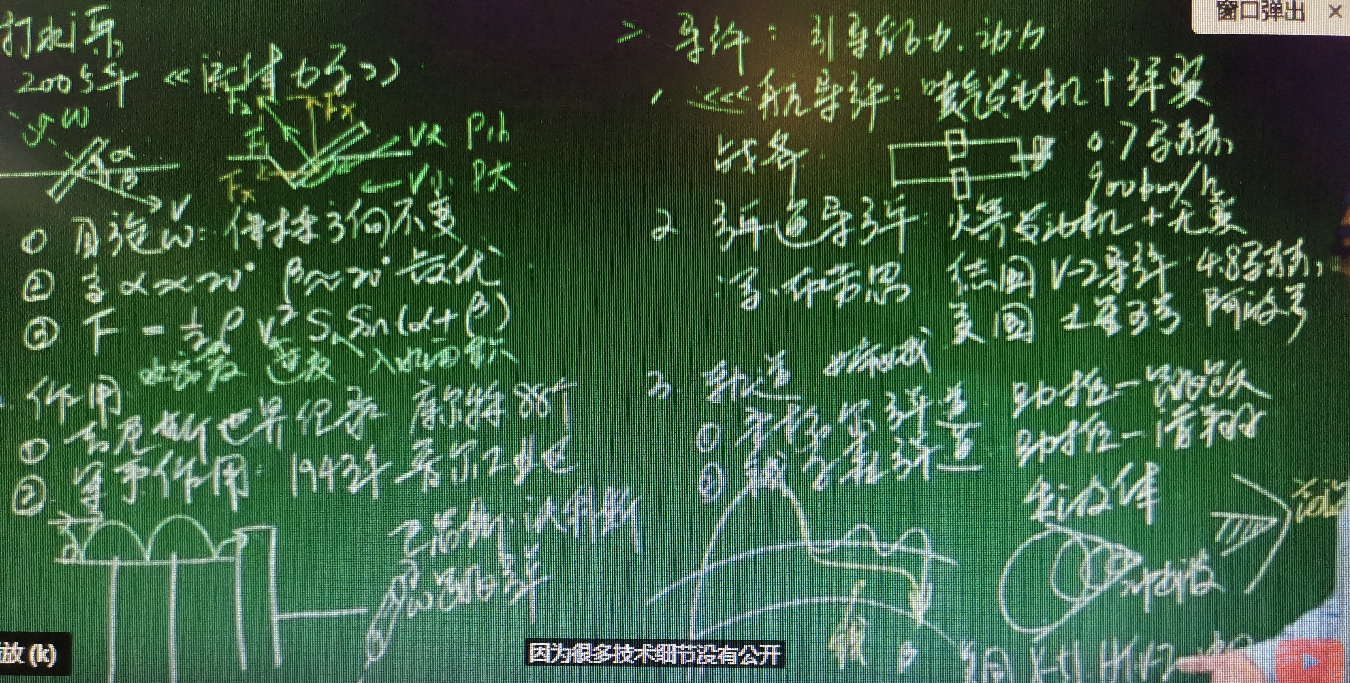 打水漂
2005年 《流体力学》
α
β
V
Fx
Fx
V大 P小
V小 P大
① 自旋ω：保持方向不变
② 当α≈20° β≈20° 最优
③ F = ½ρ V² S Sin(α+β)
水密度 速度 入水面积
作用
① 吉尼斯世界纪录 库尔特 88个
② 军事作用：1943年 鲁尔工业区
跳弹
二 导弹：引导能力、动力
1 巡航导弹：喷气发动机+弹翼
战斧
0.7马赫
900km/h
2 弹道导弹：火箭发动机+无翼
冯·布劳恩 德国 V-2导弹 4.8马赫
美国 土星5号 阿波罗
3 轨道
① 桑格尔弹道 助推—跳跃
② 钱学森弹道 助推—滑翔
乘波体
冲击波
美国
窗口弹出 ×
放 (k)
因为很多技术细节没有公开